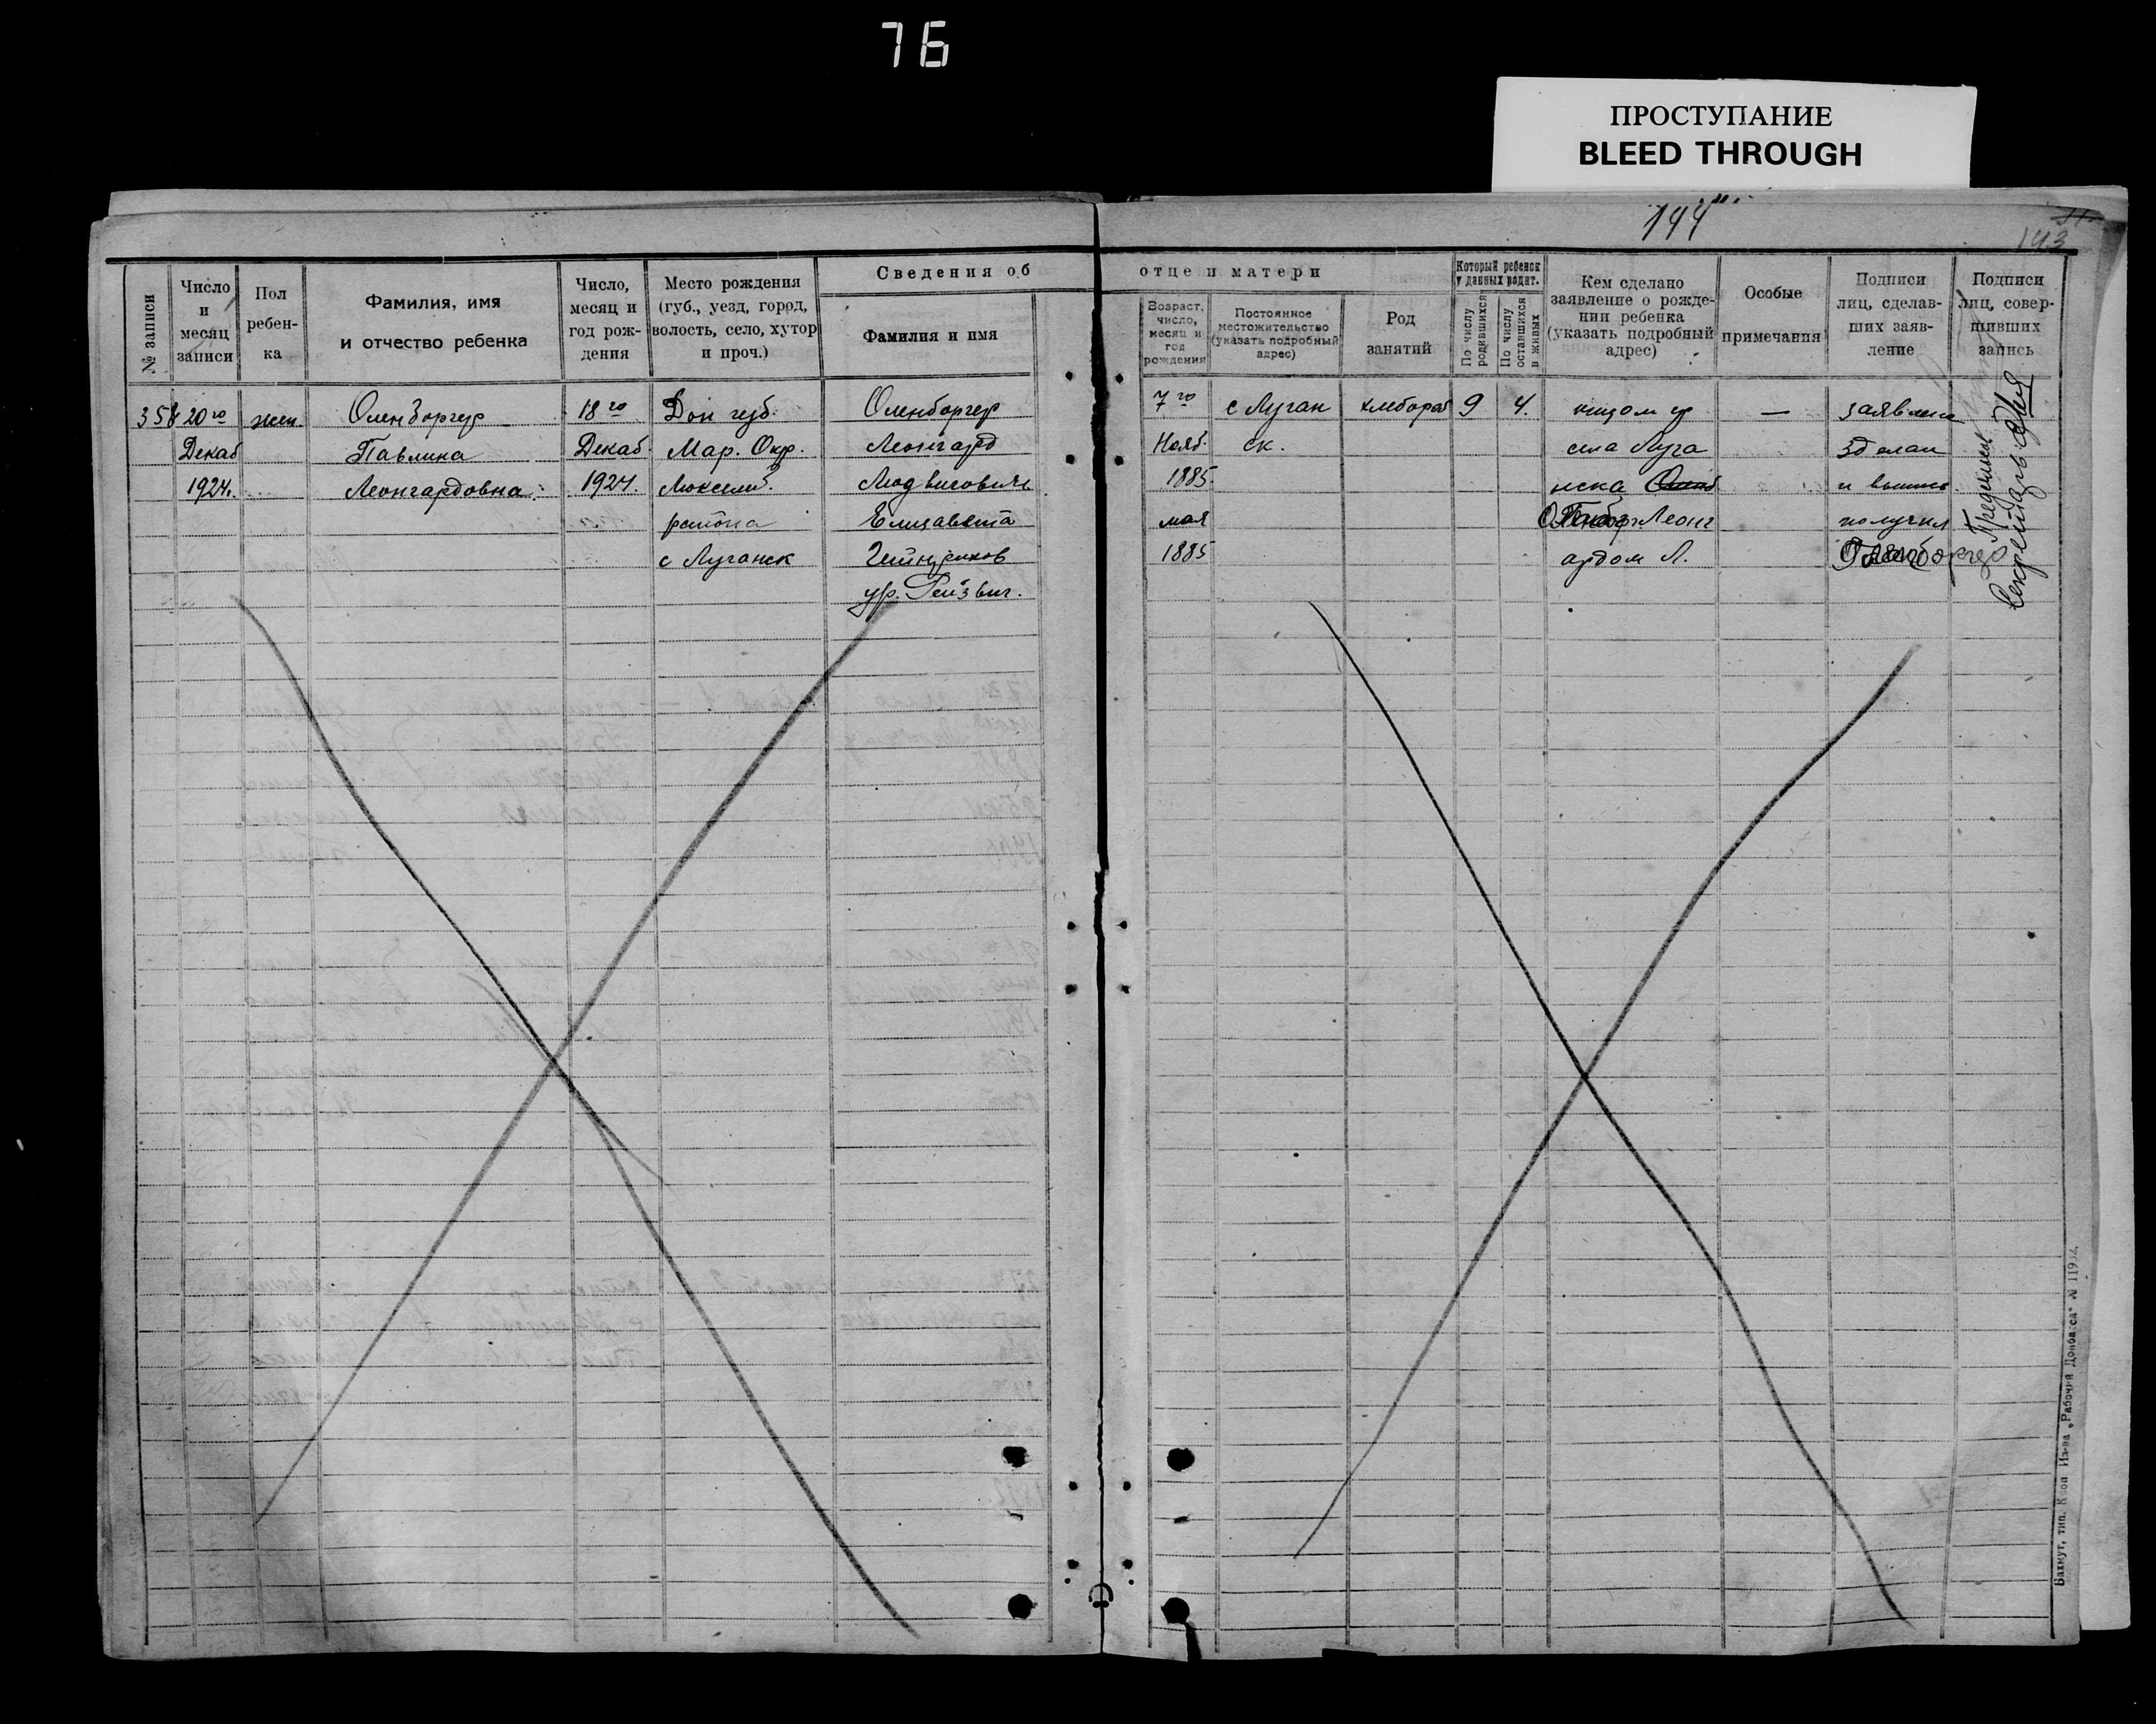 76
ПРОСТУПАНИЕ
BLEED THROUGH
144
143
Сведения об отце и матери
№ записи
Число и месяц записи
Пол ребен-
ка
Фамилия, имя
и отчество ребенка
Число,
месяц и
год рож-
дения
Место рождения
(губ., уезд, город,
волость, село, хутор
и проч.)
Фамилия и имя
Возраст,
число,
месяц и
год
рождения
Постоянное
местожительство
(указать подробный
адрес)
Род
занятий
Который ребенок
у данных родит.
По числу
родившихся
По числу
оставшихся
в живых
Кем сделано
заявление о рожде-
нии ребенка
(указать подробный
адрес)
Особые
примечания
Подписи
лиц, сделав-
ших заяв-
ление
Подписи
лиц, совер-
шивших
запись
358 20го жен. Оленборгер 18го Дон губ. Оленборгер 7го с Луган хлебороб 9 4. — заявление
Декаб Павлина Декаб. Мар. Окр. Леонгард Нояб. ск. села Луга зделал
1924. Леонгардовна. 1924. Люксемб. Людвигович 1885 нска и выпись
района Елизавета мая Леонг получил
с Луганск 1885 ардом Л. Оленборгер
ур. Рейзвиг.
Секретарь
Бахмут, тип. Изд-ва „Рабочий Донбасса“ №